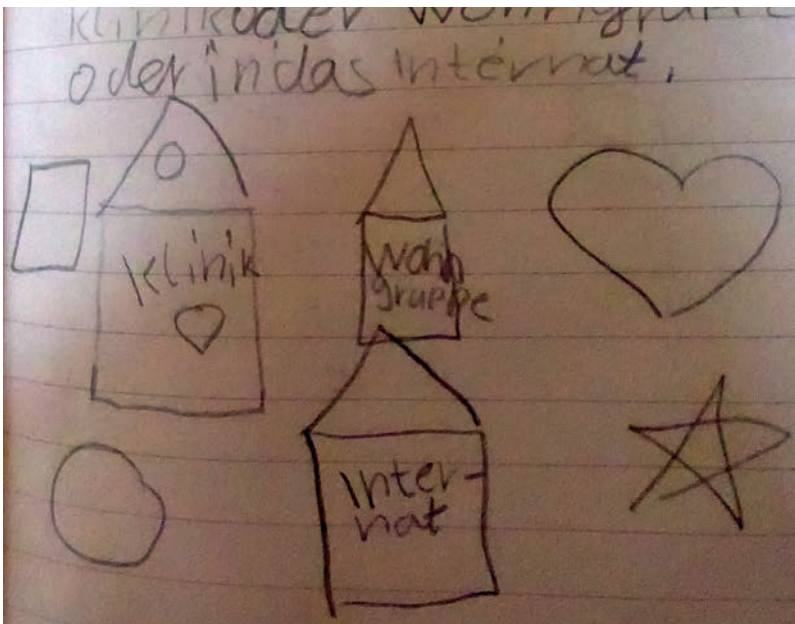 klinik oder Wohngruppe
oder in das Internat.
Klinik
Wohn
gruppe
Inter-
nat